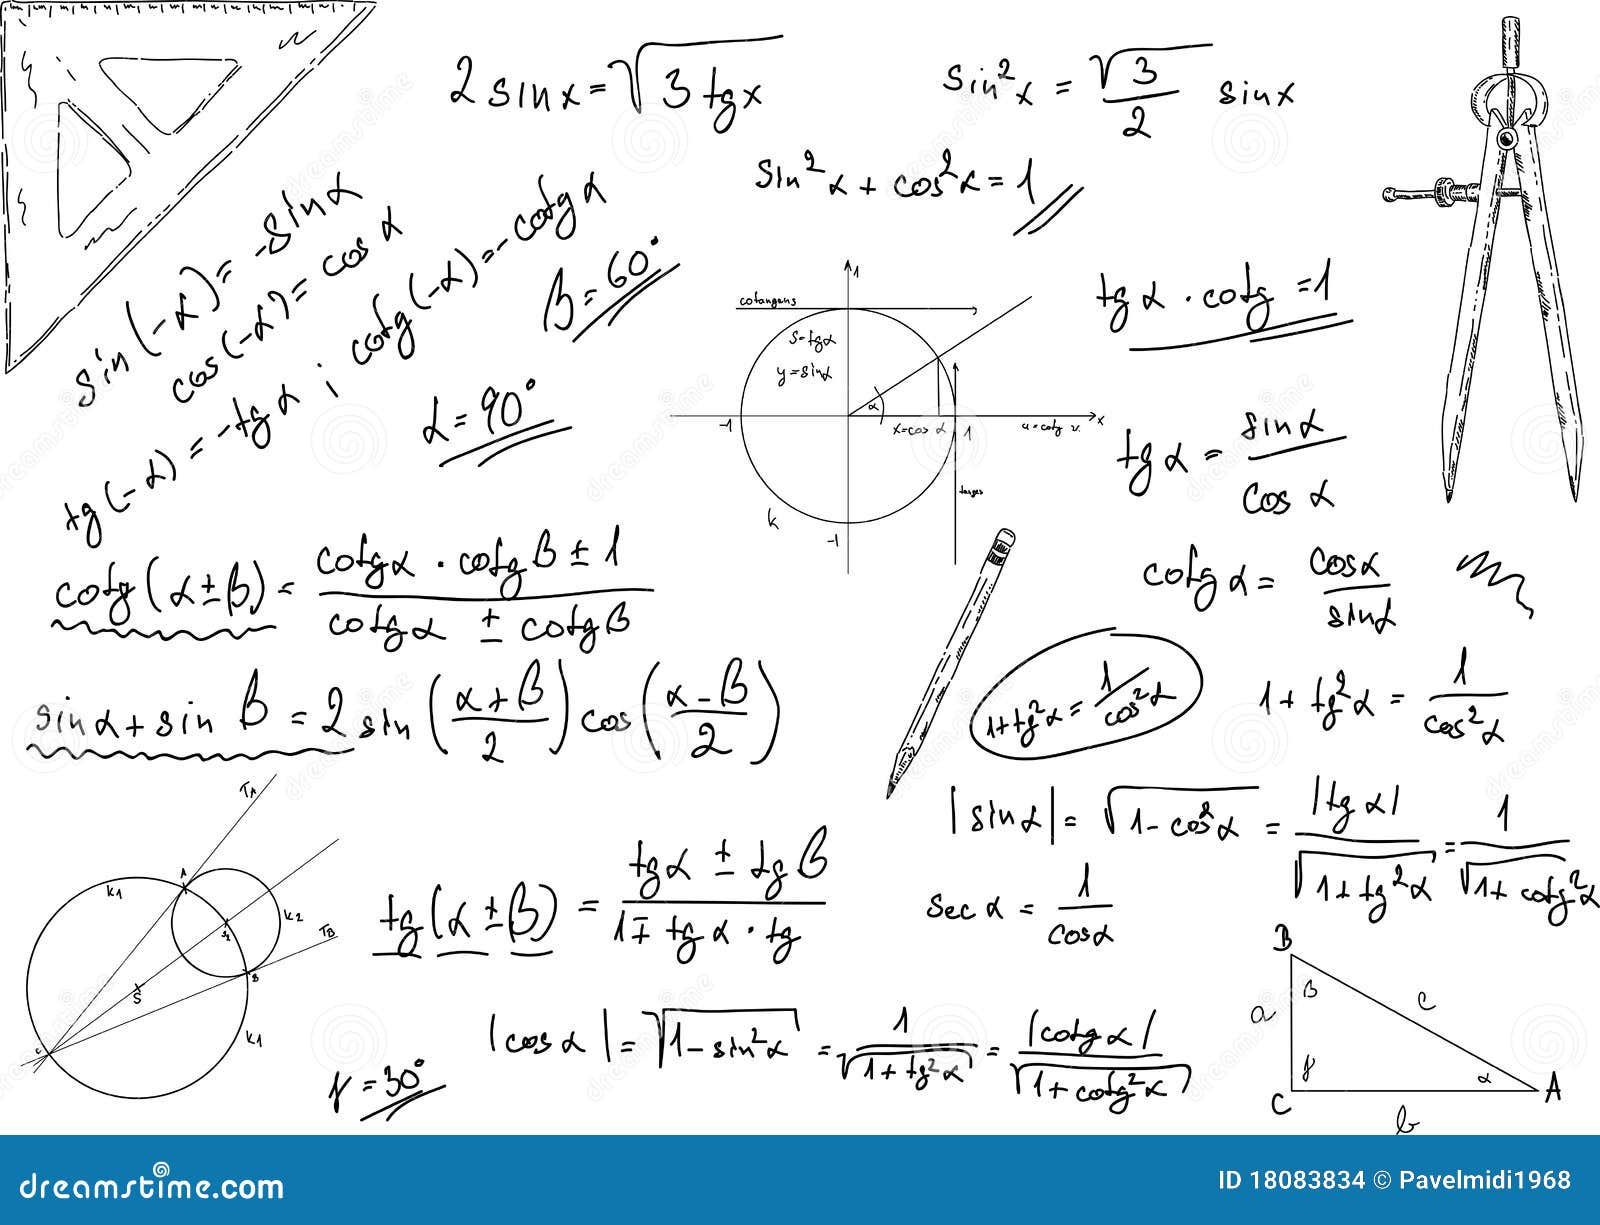 2 sin x = √3 tg x
sin² x = √3/2 sin x
sin² α + cos² α = 1
sin (-α) = -sin α
cos (-α) = cos α
tg (-α) = -tg α ; cotg (-α) = -cotg α
β = 60°
α = 90°
1
cotangens
S=tgα
y=sinα
α
-1
x=cos α
1
x
k
-1
tg α · cotg = 1
tg α = sin α / cos α
cotg α = cos α / sin α
cotg (α ± β) = cotg α · cotg β ± 1 / cotg α ± cotg β
sin α + sin β = 2 sin (α + β / 2) cos (α - β / 2)
1 + tg² α = 1 / cos² α
1 + tg² α = 1 / cos² α
|sin α| = √1 - cos² α = |tg α| / √1 + tg² α = 1 / √1 + cotg² α
TA
A
k1
k2
S1
TB
B
S
C
k1
tg (α ± β) = tg α ± tg β / 1 ∓ tg α · tg
sec α = 1 / cos α
|cos α| = √1 - sin² α = 1 / √1 + tg² α = |cotg α| / √1 + cotg² α
γ = 30°
B
β
a
c
γ
α
C
A
b
dreamstime.com
ID 18083834 © Pavelmidi1968